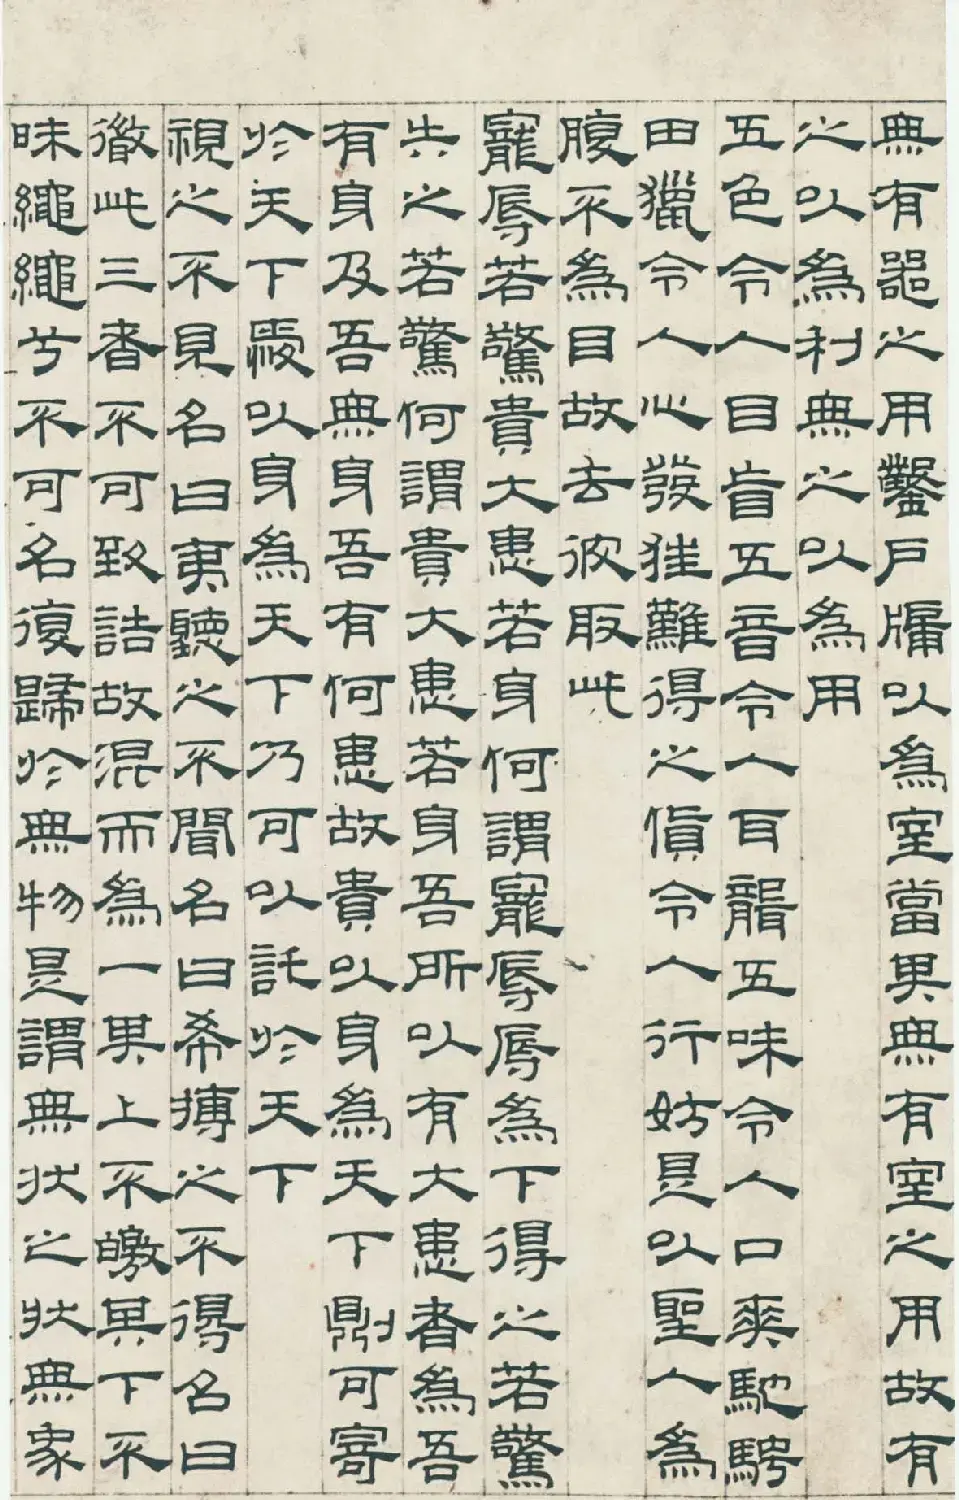 無有器之用鑿戶牖以為室當其無有室之用故有
之以為利無之以為用
五色令人目盲五音令人耳聾五味令人口爽馳騁
田獵令人心發狂難得之貨令人行妨是以聖人為
腹不為目故去彼取此
寵辱若驚貴大患若身何謂寵辱辱為下得之若驚
失之若驚何謂貴大患若身吾所以有大患者為吾
有身及吾無身吾有何患故貴以身為天下則可寄
於天下愛以身為天下乃可以託於天下
視之不見名曰夷聽之不聞名曰希摶之不得名曰
微此三者不可致詰故混而為一其上不皦其下不
昧繩繩兮不可名復歸於無物是謂無狀之狀無象